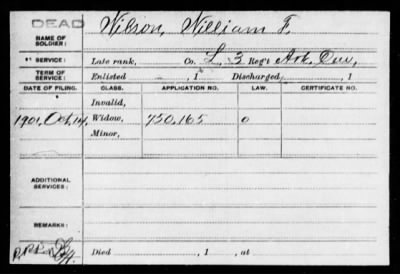 DEAD
NAME OF SOLDIER: Wilson, William F.
SERVICE: Late rank, Co. L, 3 Reg't Ark. Cav,
TERM OF SERVICE: Enlisted , 1 Discharged , 1
DATE OF FILING. CLASS. APPLICATION NO. LAW. CERTIFICATE NO.
Invalid,
1901, Oct. 14, Widow, 750.165 0
Minor,
ADDITIONAL SERVICES:
REMARKS:
Died , 1 , at